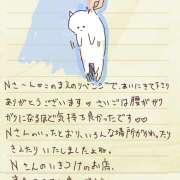 Nさ〜んからこのまえのリベンジで、あいにきて下さり
ありがとうございます♡ さいごは腰がガク
ガクになるほど気持ち良かったです♡
Nさんのいったとおり、いろんな場所がかれ、たり
さんたり いたしましたよね。
Nさんのいきつけのお店、